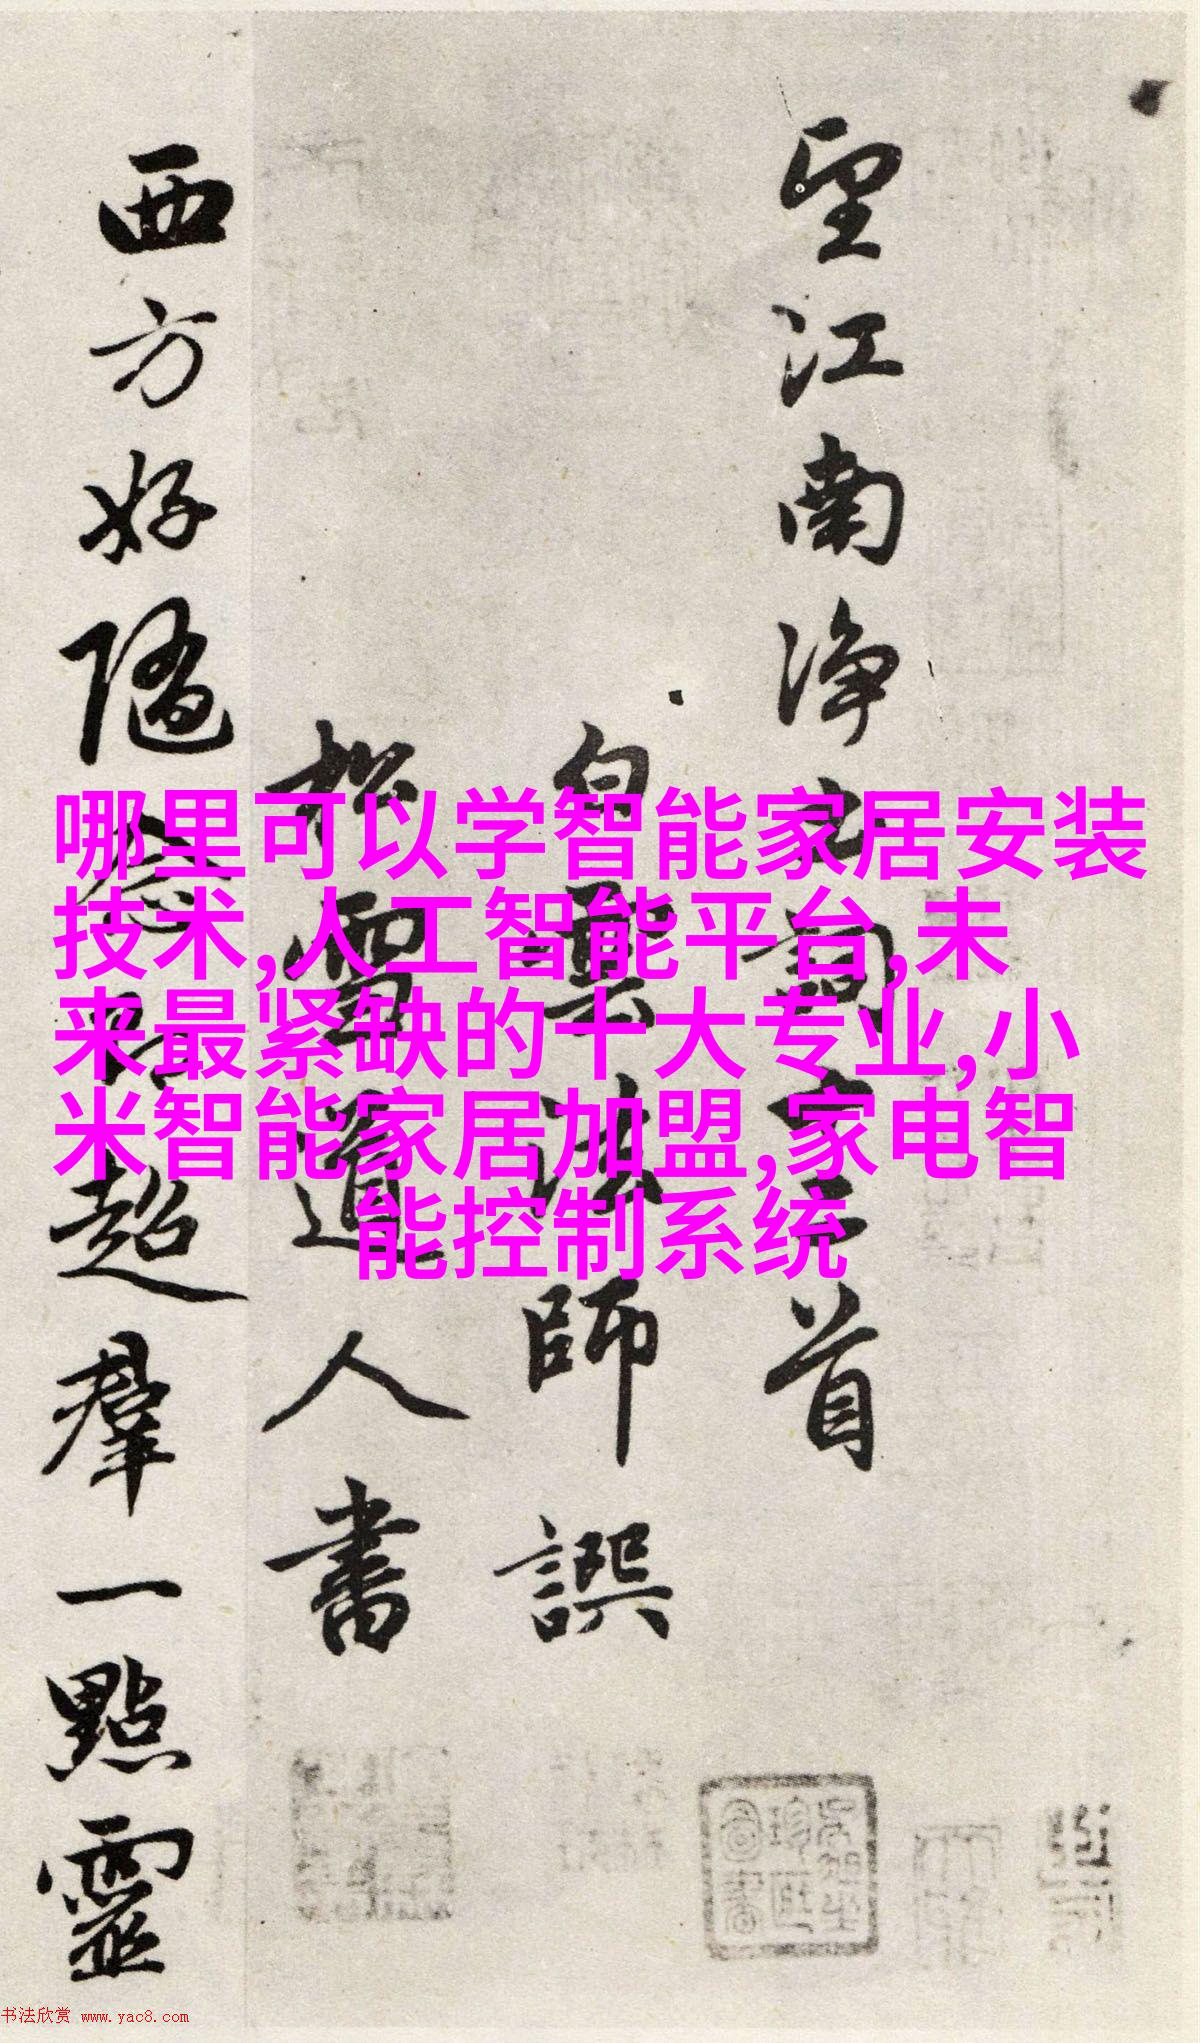 望江南淨土詞十二首
白雲法師譔
松雪道人書
西方好隨念即超羣一點靈
哪里可以学智能家居安装
技术,人工智能平台,未
来最紧缺的十大专业,小
米智能家居加盟,家电智
能控制系统
书法欣赏 www.yac8.com